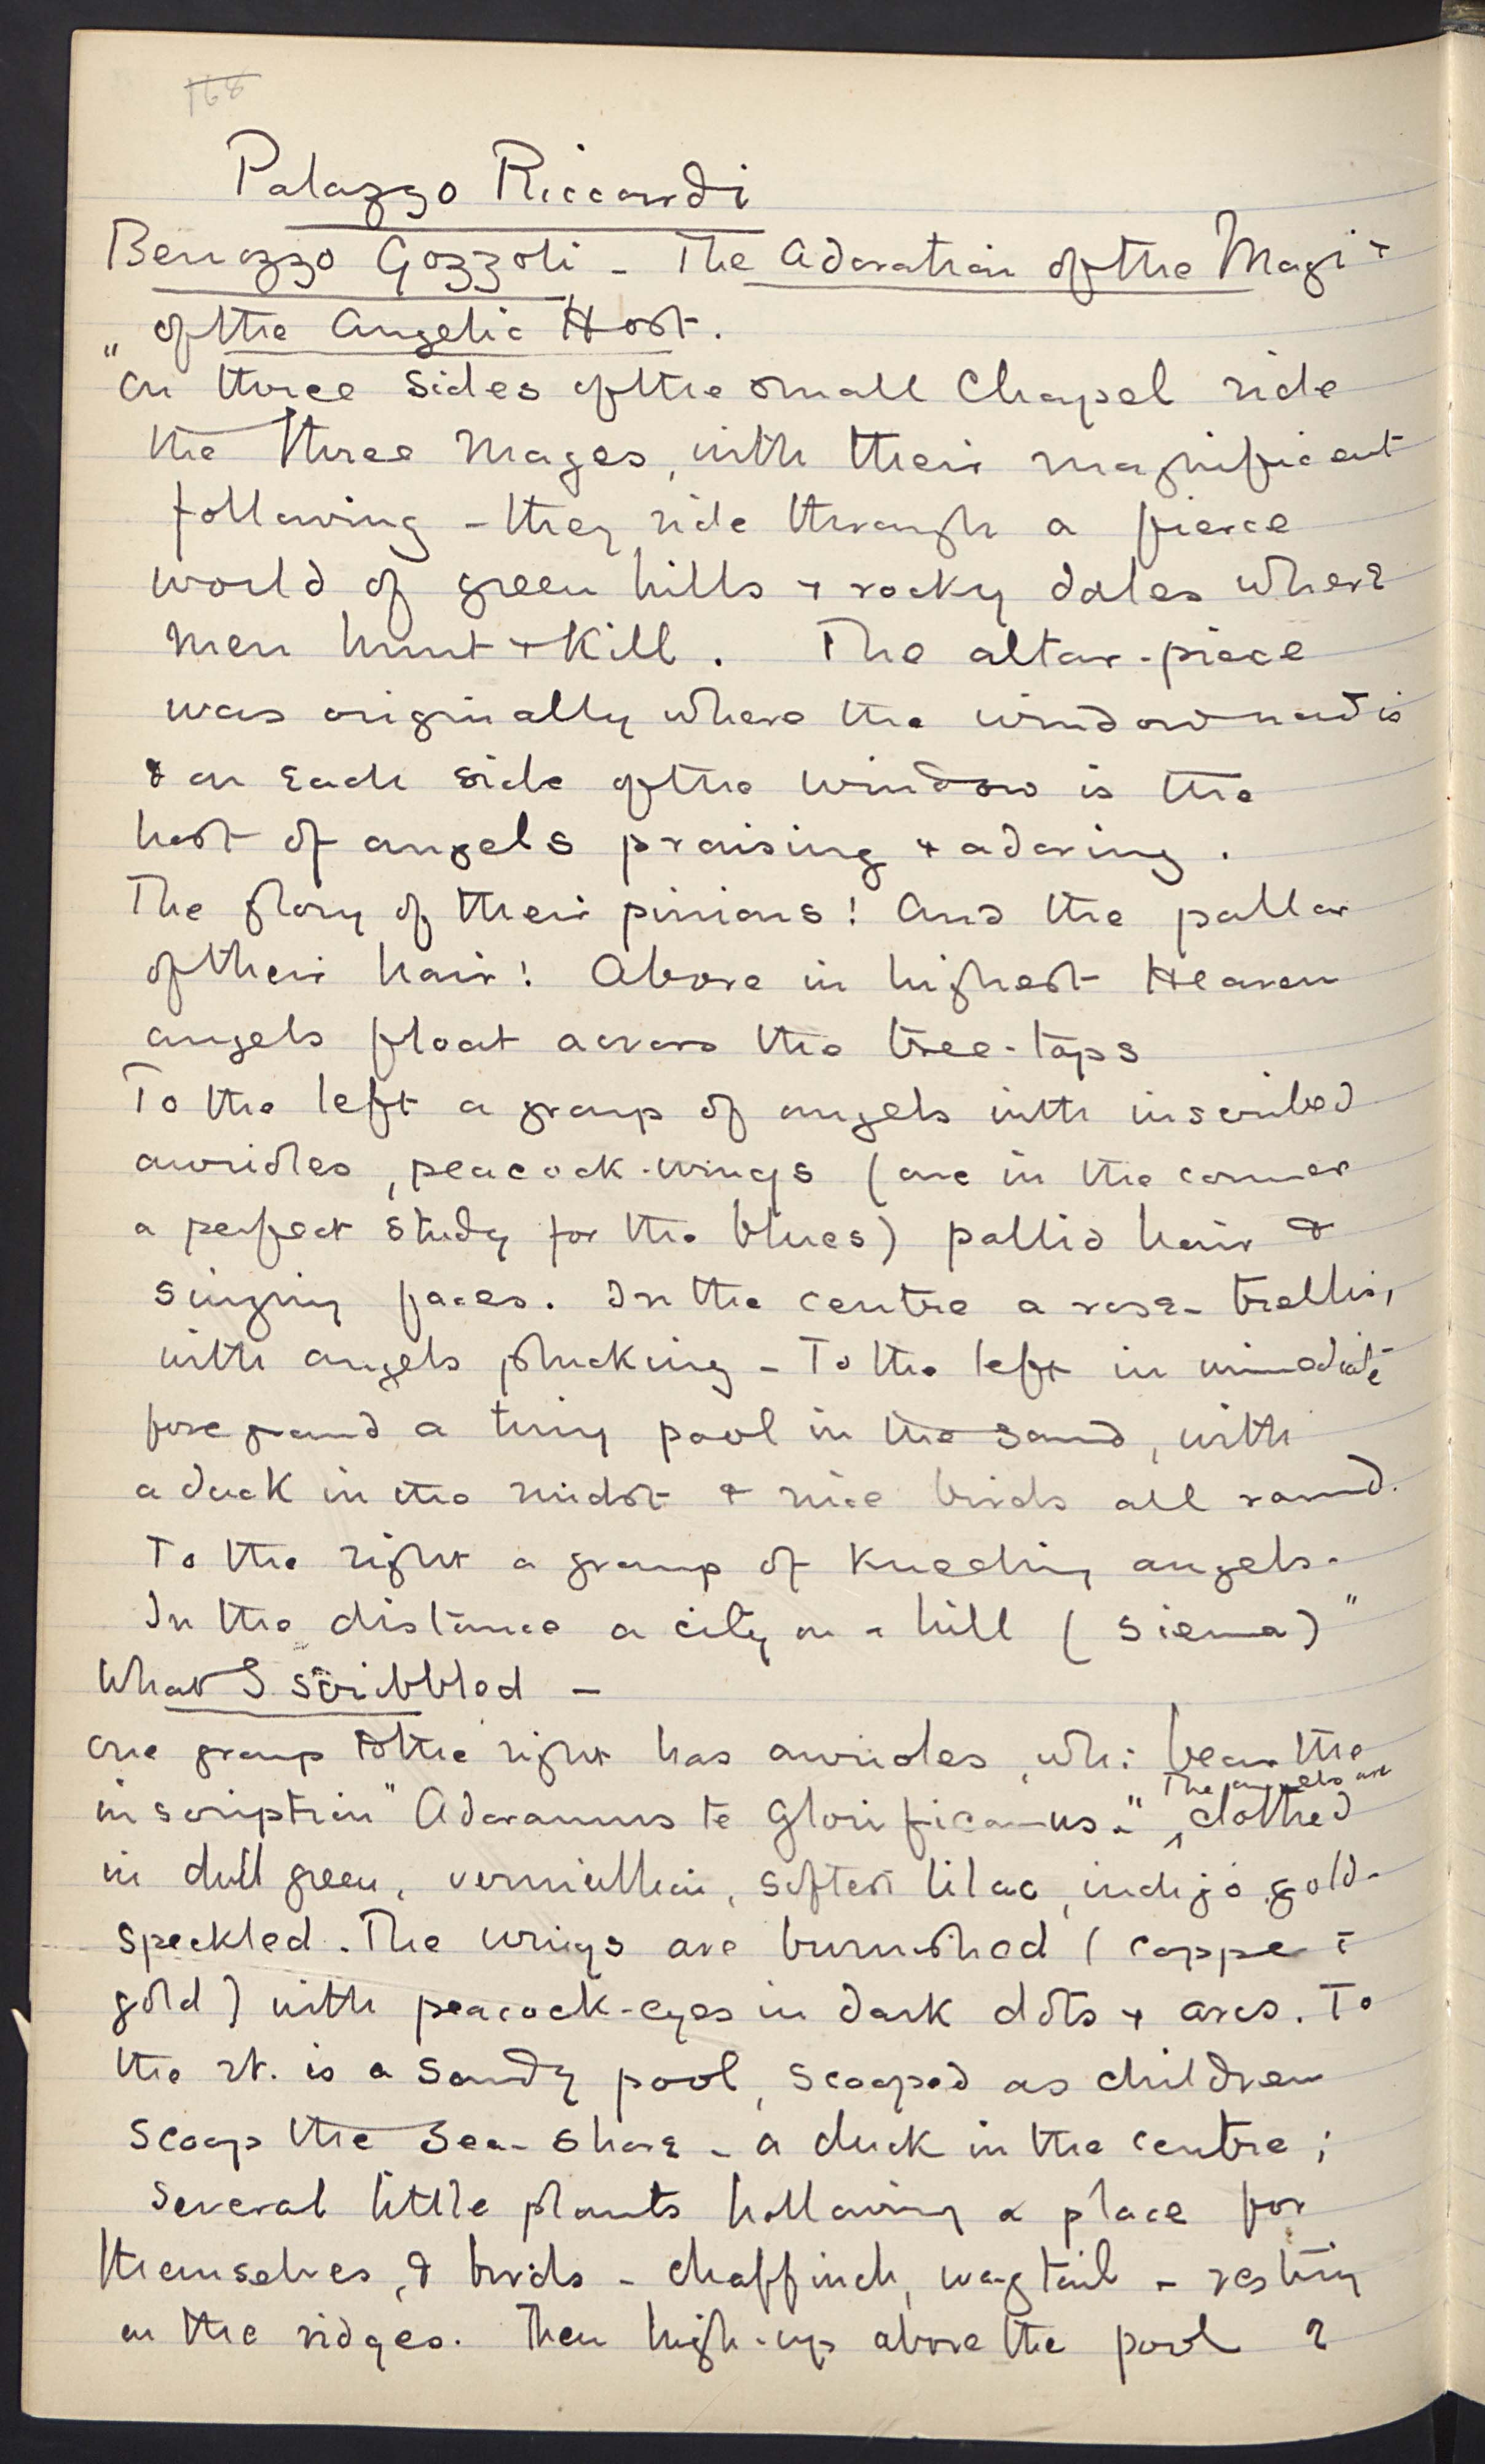 168
Palazzo Riccardi
Benozzo Gozzoli - The Adoration of the Magi &
of the Angelic Host.
"On three sides of the small Chapel ride
the three Mages, with their magnificent
following - they ride through a fierce
world of green hills & rocky dales where
men hunt & kill. The altar-piece
was originally where the window now is
& on each side of the window is the
host of angels praising & adoring.
The glory of their pinions! And the pallor
of their hair! Above in highest Heaven
angels float across the tree-tops
To the left a group of angels with inscribed
aurioles, peacock-wings (one in the corner
a perfect study for the blues) pallid hair &
singing faces. In the centre a rose-trellis,
with angels plucking - To the left in immediate
foreground a tiny pool in the sand, with
a duck in the midst & nice birds all round.
To the right a group of kneeling angels.
In the distance a city on a hill (Siena)"
What I scribbled -
One group to the right has aurioles, wh: bear the
inscription "Adoramus te Glorificamus." The angels are clothed
in dull green, vermillion, softest lilac, indigo, gold-
speckled. The wings are burnished (copper &
gold) with peacock-eyes in dark dots & arcs. To
the rt. is a sandy pool, scooped as children
scoop the sea-shore - a duck in the centre;
several little plants hollowing a place for
themselves, & birds - chaffinch, wagtail - resting
on the ridges. Then high-up above the pool